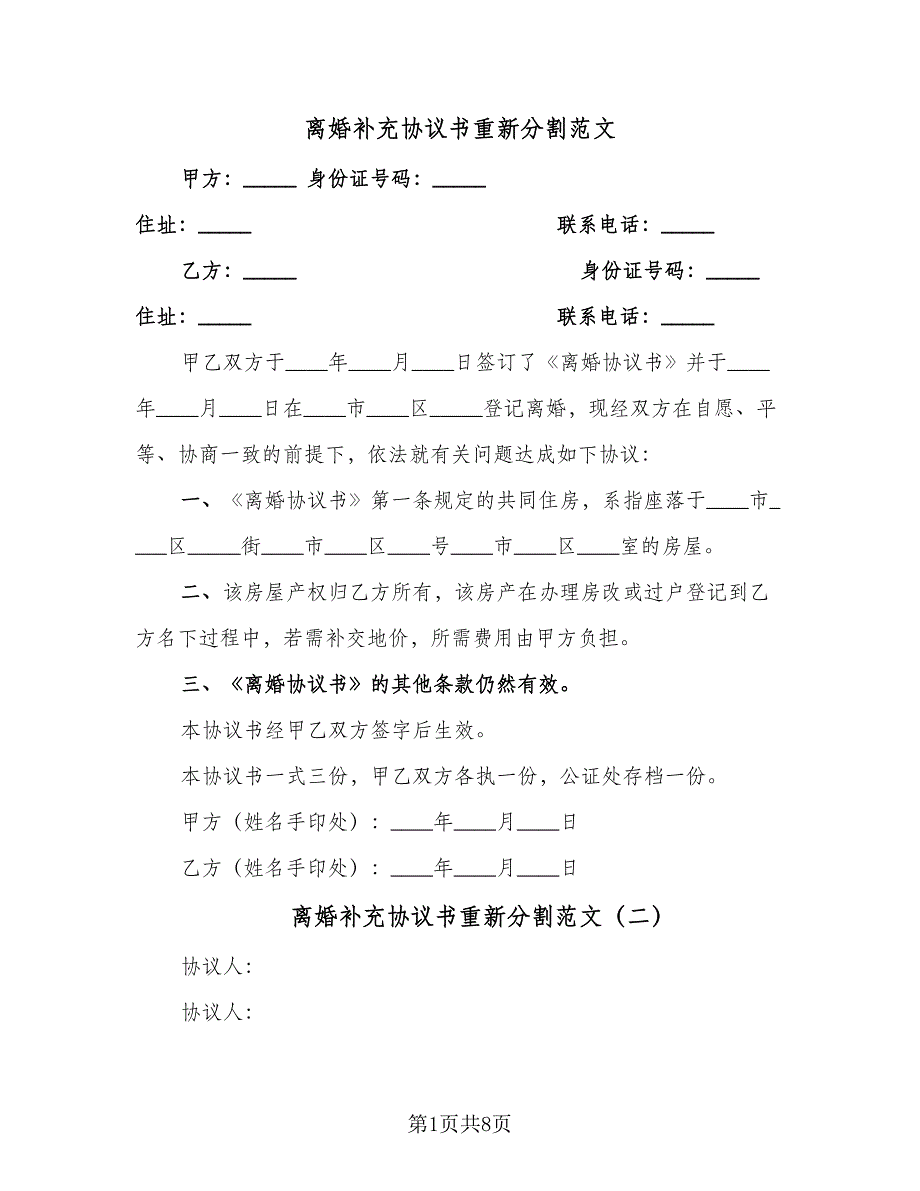 离婚补充协议书重新分割范文
甲方：_____ 身份证号码：_____
住址：_____ 联系电话：_____
乙方：_____ 身份证号码：_____
住址：_____ 联系电话：_____
甲乙双方于____年____月____日签订了《离婚协议书》并于____
年____月____日在____市____区_____登记离婚，现经双方在自愿、平
等、协商一致的前提下，依法就有关问题达成如下协议：
一、《离婚协议书》第一条规定的共同住房，系指座落于____市_
___区_____街____市____区____号____市____区____室的房屋。
二、该房屋产权归乙方所有，该房产在办理房改或过户登记到乙
方名下过程中，若需补交地价，所需费用由甲方负担。
三、《离婚协议书》的其他条款仍然有效。
本协议书经甲乙双方签字后生效。
本协议书一式三份，甲乙双方各执一份，公证处存档一份。
甲方（姓名手印处）：____年____月____日
乙方（姓名手印处）：____年____月____日
离婚补充协议书重新分割范文（二）
协议人：
协议人：
第1页共8页